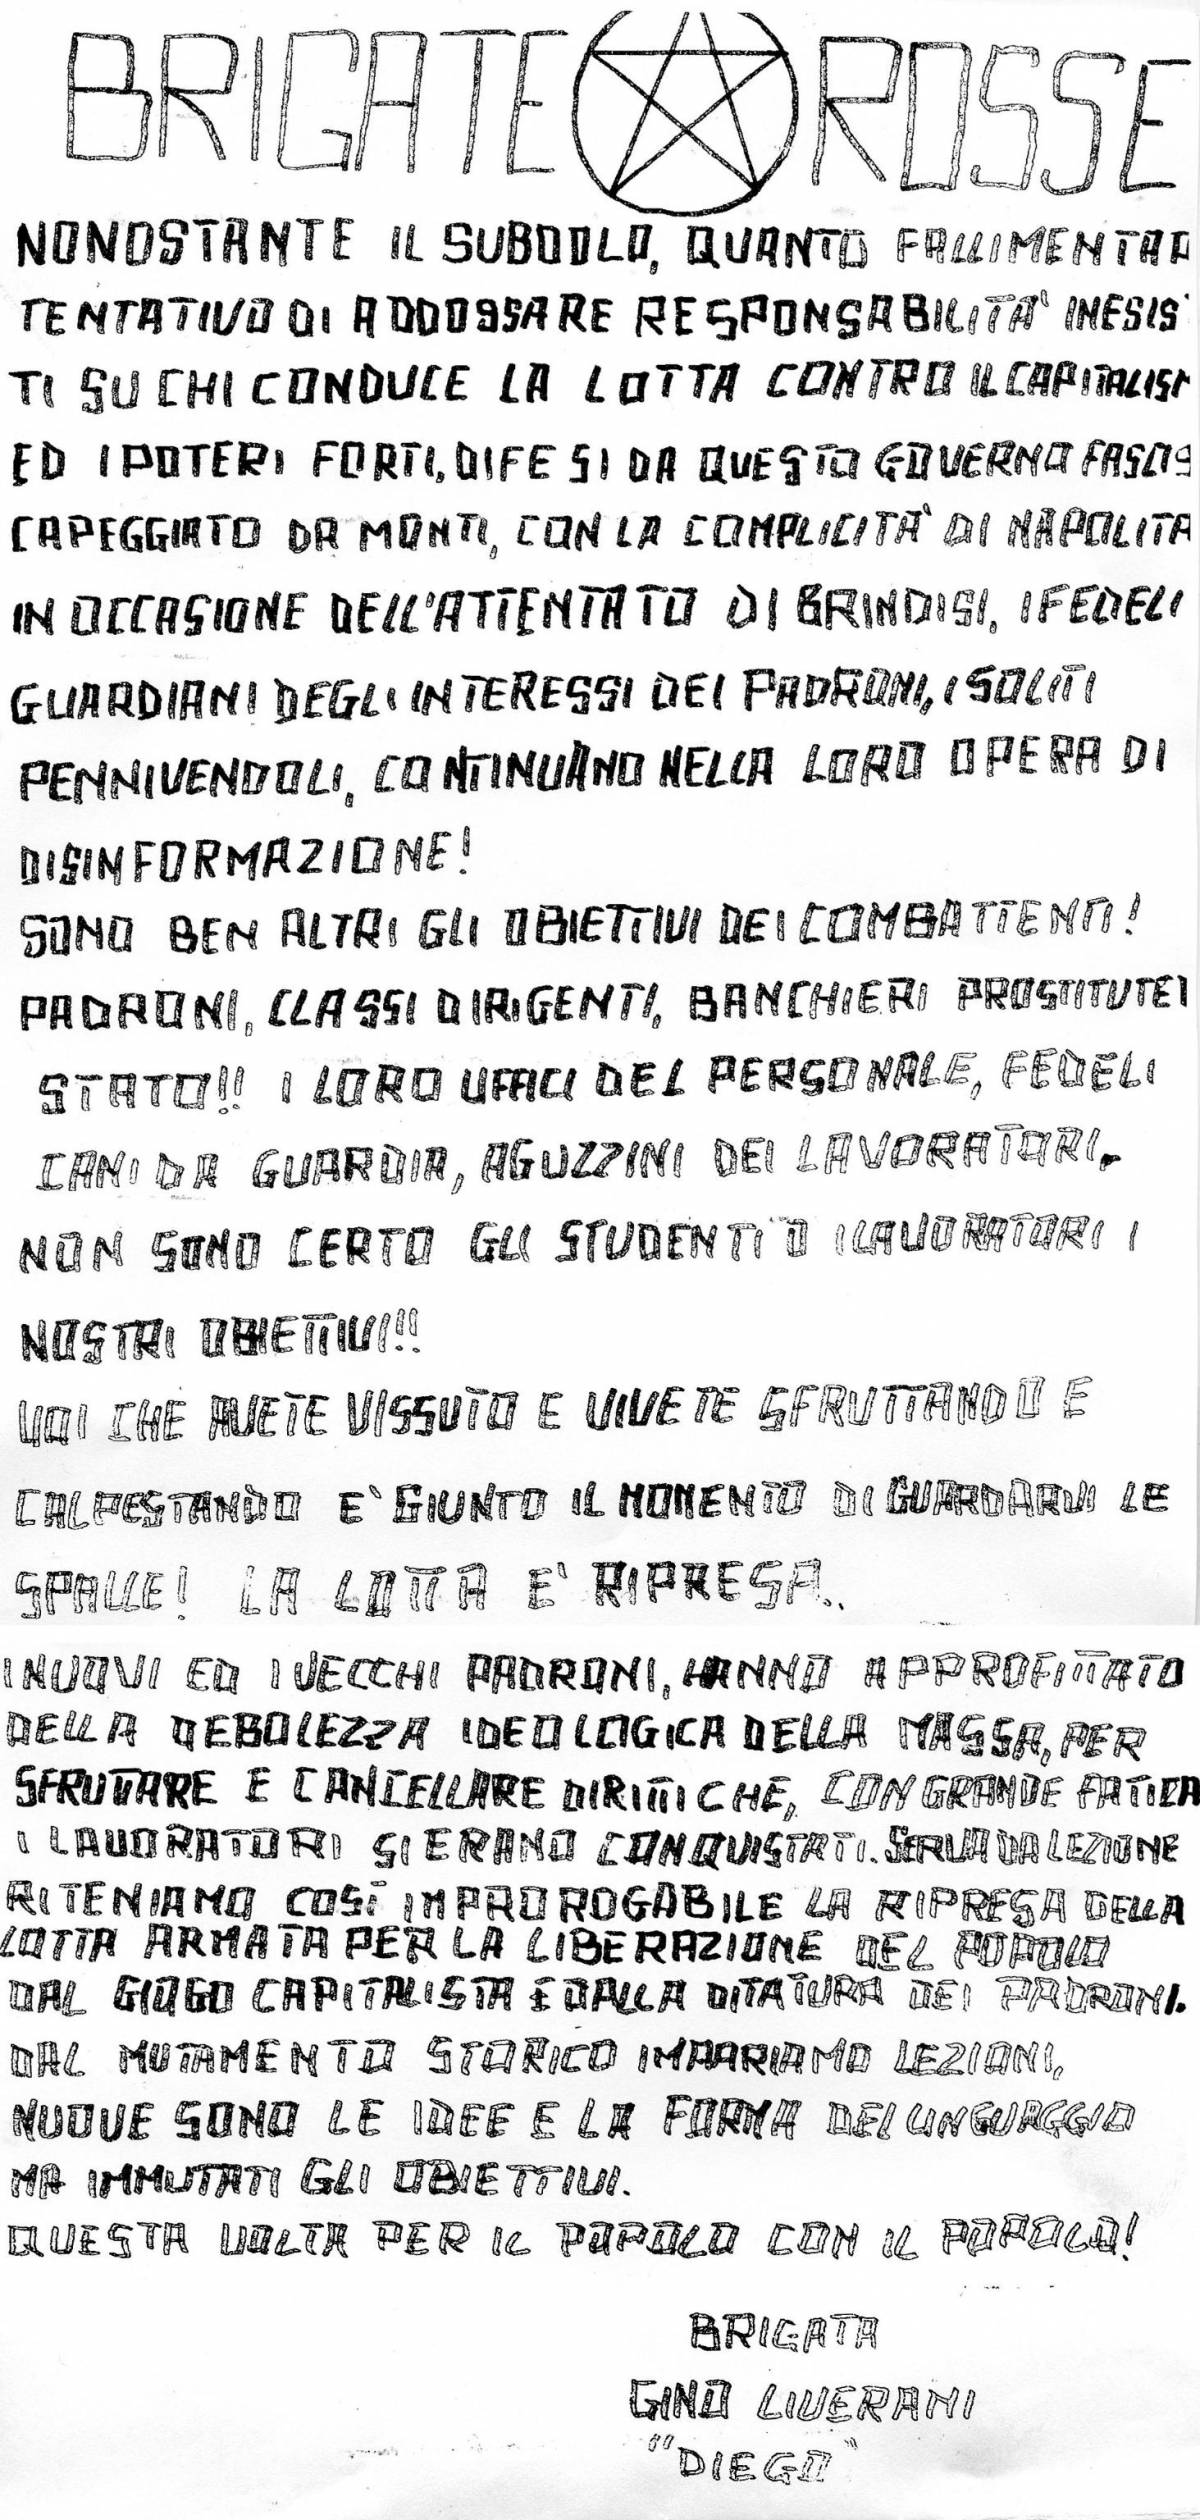 BRIGATE ROSSE
NONOSTANTE IL SUBDOLO, QUANTO FALLIMENTAR
TENTATIVO DI ADDOSSARE RESPONSABILITA' INESIS
TI SU CHI CONDUCE LA LOTTA CONTRO IL CAPITALISM
ED I POTERI FORTI, DIFESI DA QUESTO GOVERNO FASCIS
CAPEGGIATO DA MONTI, CON LA COMPLICITA' DI NAPOLITA
IN OCCASIONE DELL'ATTENTATO DI BRINDISI, I FEDELI
GUARDIANI DEGLI INTERESSI DEI PADRONI, I SOLITI
PENNIVENDOLI, CONTINUANO NELLA LORO OPERA DI
DISINFORMAZIONE!
SONO BEN ALTRI GLI OBIETTIVI DEI COMBATTENTI!
PADRONI, CLASSI DIRIGENTI, BANCHIERI PROSTITUTE
STATO!! I LORO UFFICI DEL PERSONALE, FEDELI
CANI DA GUARDIA, AGUZZINI DEI LAVORATORI.
NON SONO CERTO GLI STUDENTI O I LAVORATORI I
NOSTRI OBIETTIVI!!
VOI CHE AVETE VISSUTO E VIVETE SFRUTTANDO E
CALPESTANDO E' GIUNTO IL MOMENTO DI GUARDARVI LE
SPALLE! LA LOTTA E' RIPRESA..
I NUOVI ED I VECCHI PADRONI, HANNO APPROFITTATO
DELLA DEBOLEZZA IDEOLOGICA DELLA MASSA, PER
SFRUTTARE E CANCELLARE DIRITTI CHE, CON GRANDE FATICA
I LAVORATORI SI ERANO CONQUISTATI. SERVA DA LEZIONE
RITENIAMO COSI' IMPROROGABILE LA RIPRESA DELLA
LOTTA ARMATA PER LA LIBERAZIONE DEL POPOLO
DAL GIOGO CAPITALISTA E DALLA DITATURA DEI PADRONI.
DAL MUTAMENTO STORICO IMPARIAMO LEZIONI,
NUOVE SONO LE IDEE E LA FORMA DEL LINGUAGGIO
MA IMMUTATI GLI OBIETTIVI.
QUESTA VOLTA PER IL POPOLO CON IL POPOLO!
BRIGATA
GINO LIVERANI
"DIEGO"